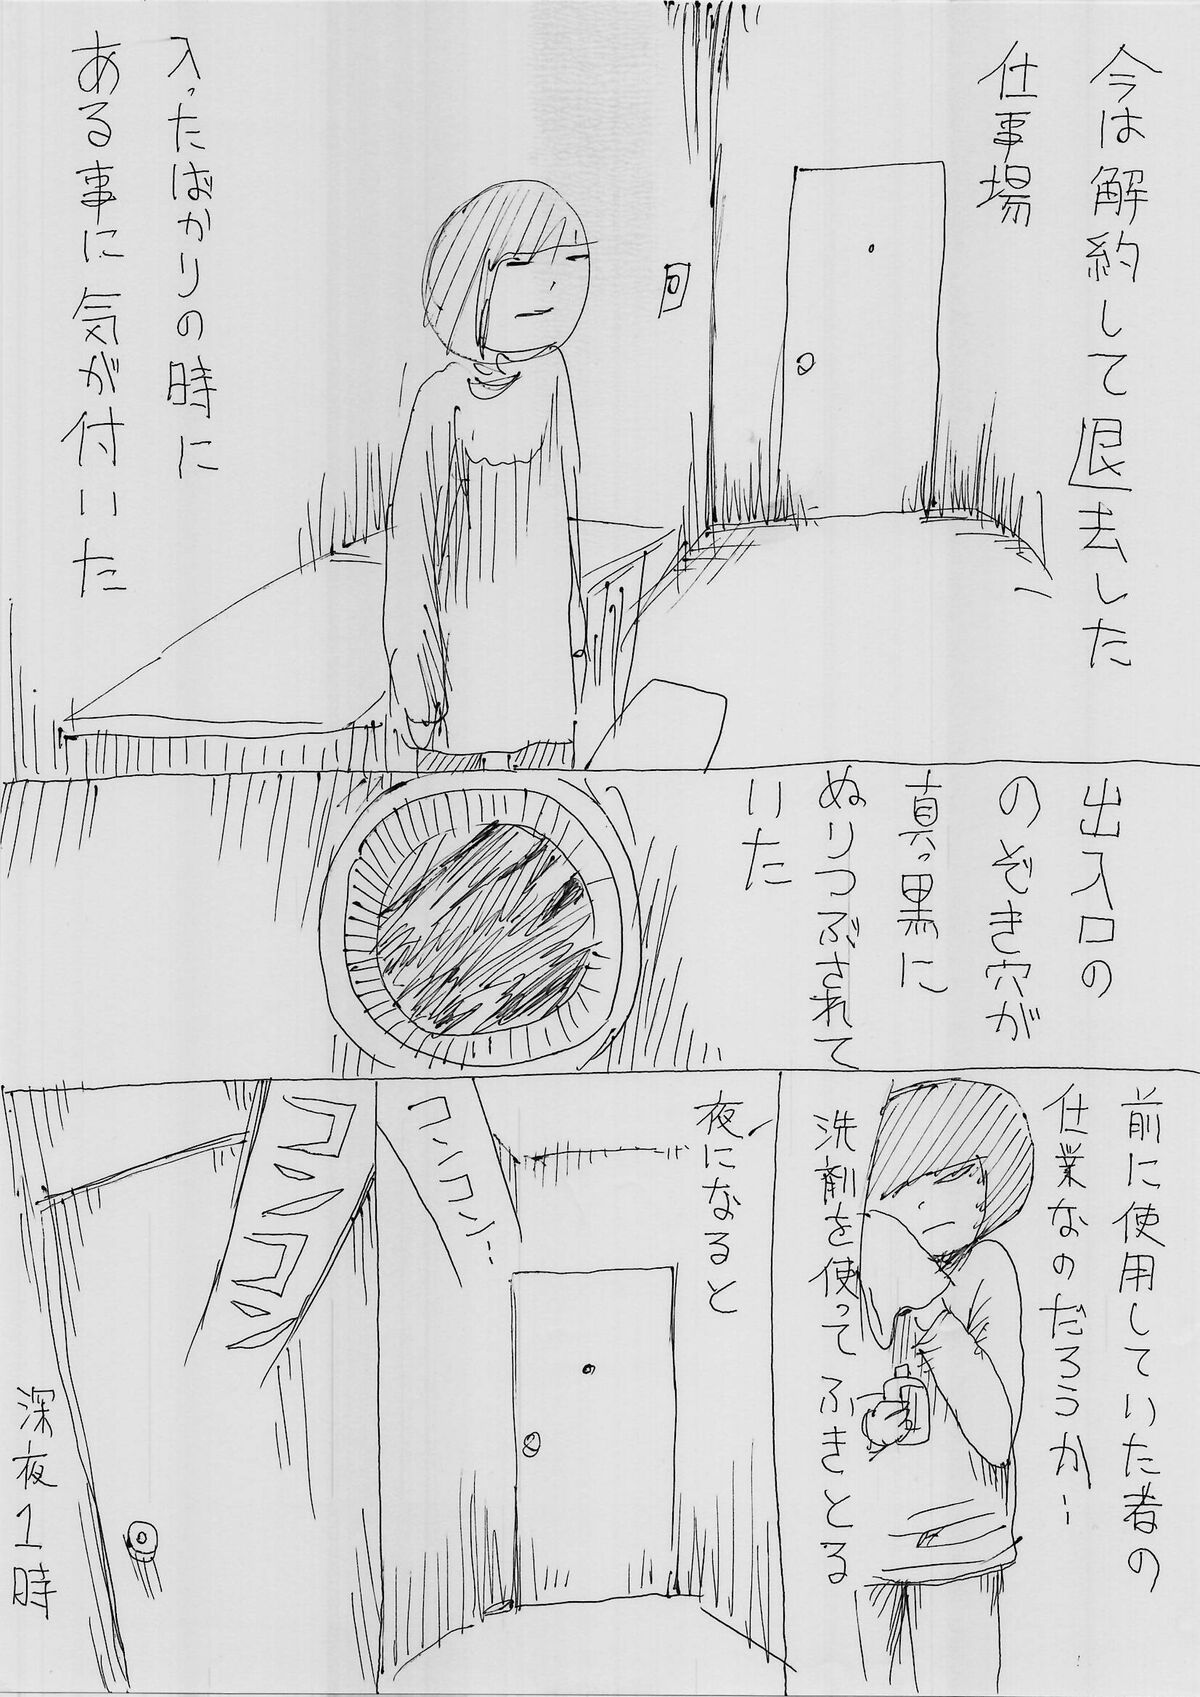 今は解約して退去した
仕事場
入ったばかりの時に
ある事に気が付いた
出入口の
のぞき穴が
真っ黒に
ぬりつぶされて
いた
前に使用していた者の
仕業なのだろうか…
洗剤を使ってふきとる
夜になると
コンコン…
コンコン
深夜1時